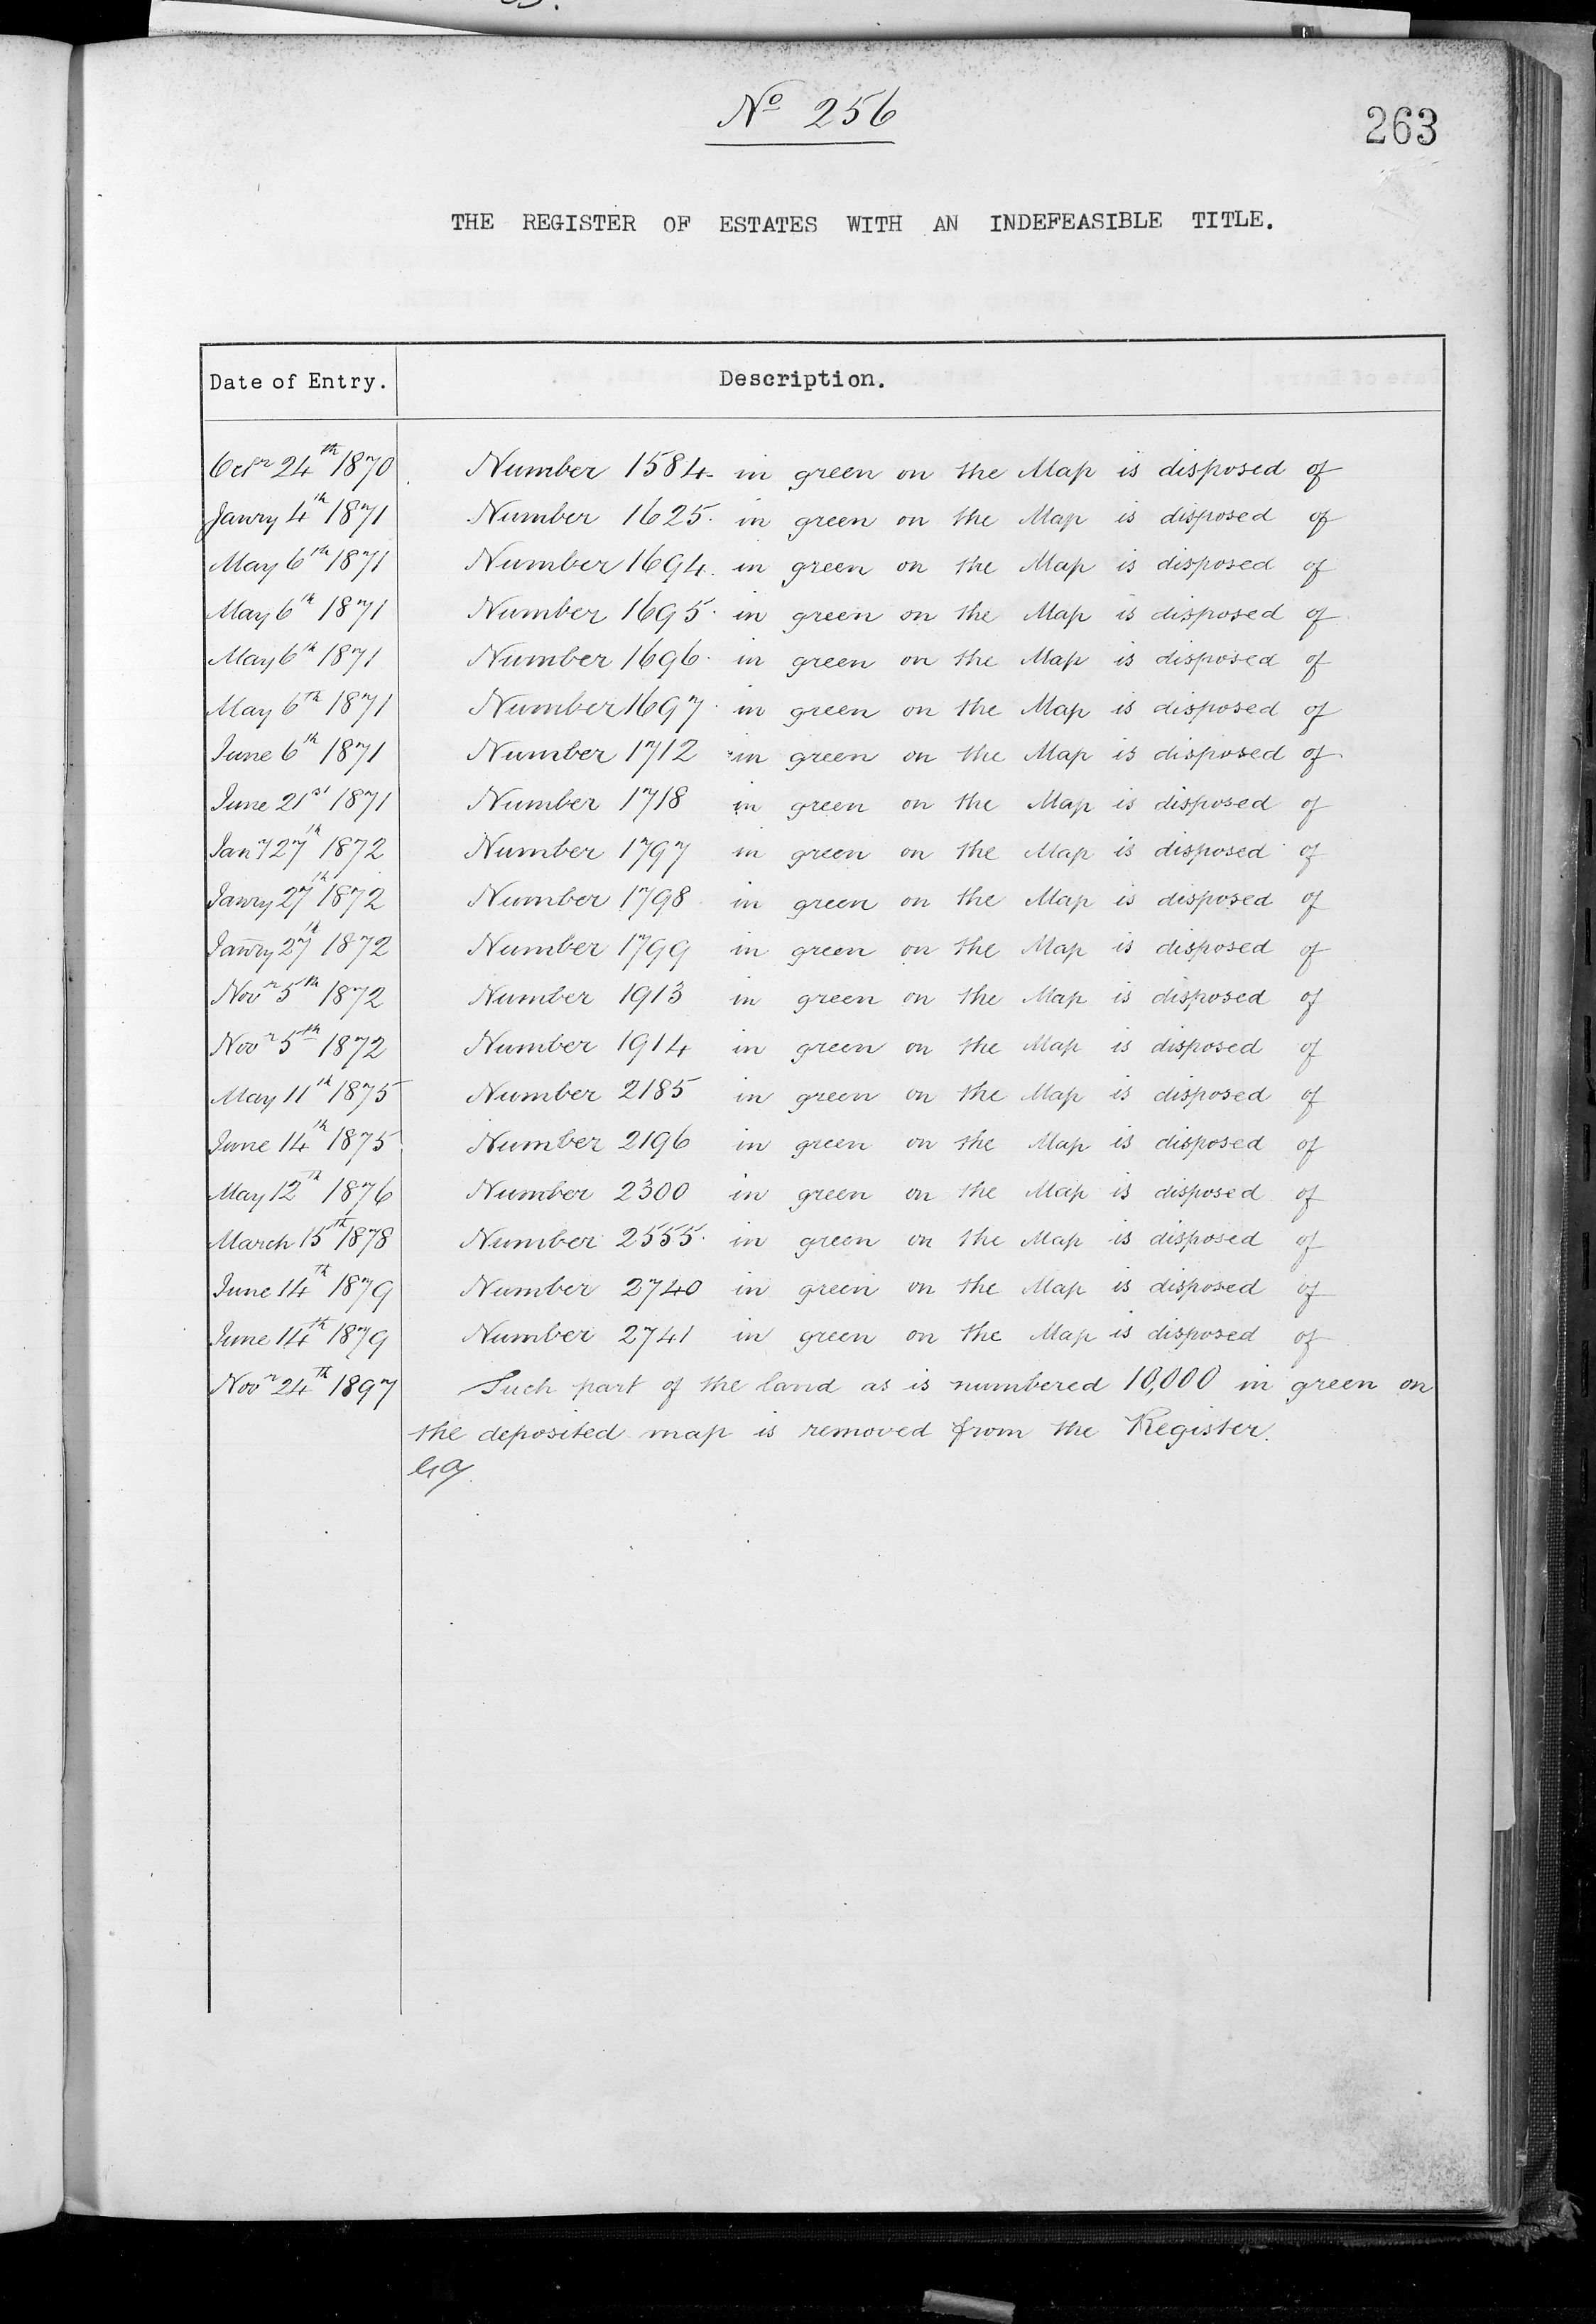 Nº 256
263
THE REGISTER OF ESTATES WITH AN INDEFEASIBLE TITLE.
Date of Entry. Description.
Octr 24th 1870 Number 1584 in green on the Map is disposed of
Janry 4th 1871 Number 1625. in green on the Map is disposed of
May 6th 1871 Number 1694. in green on the Map is disposed of
May 6th 1871 Number 1695. in green on the Map is disposed of
May 6th 1871 Number 1696. in green on the Map is disposed of
May 6th 1871 Number 1697. in green on the Map is disposed of
June 6th 1871 Number 1712 in green on the Map is disposed of.
June 21st 1871 Number 1718 in green on the Map is disposed of
Jany 27th 1872 Number 1797 in green on the Map is disposed of
Janry 27th 1872 Number 1798 in green on the Map is disposed of
Janry 27th 1872 Number 1799 in green on the Map is disposed of
Novr 5th 1872 Number 1913 in green on the Map is disposed of
Novr 5th 1872 Number 1914 in green on the Map is disposed of
May 11th 1875 Number 2185 in green on the Map is disposed of
June 14th 1875 Number 2196 in green on the Map is disposed of
May 12th 1876 Number 2300 in green on the Map is disposed of
March 15th 1878 Number 2555. in green on the Map is disposed of
June 14th 1879 Number 2740 in green on the Map is disposed of
June 14th 1879 Number 2741 in green on the Map is disposed of
Novr 24th 1897 Such part of the land as is numbered 10,000 in green on
the deposited map is removed from the Register.